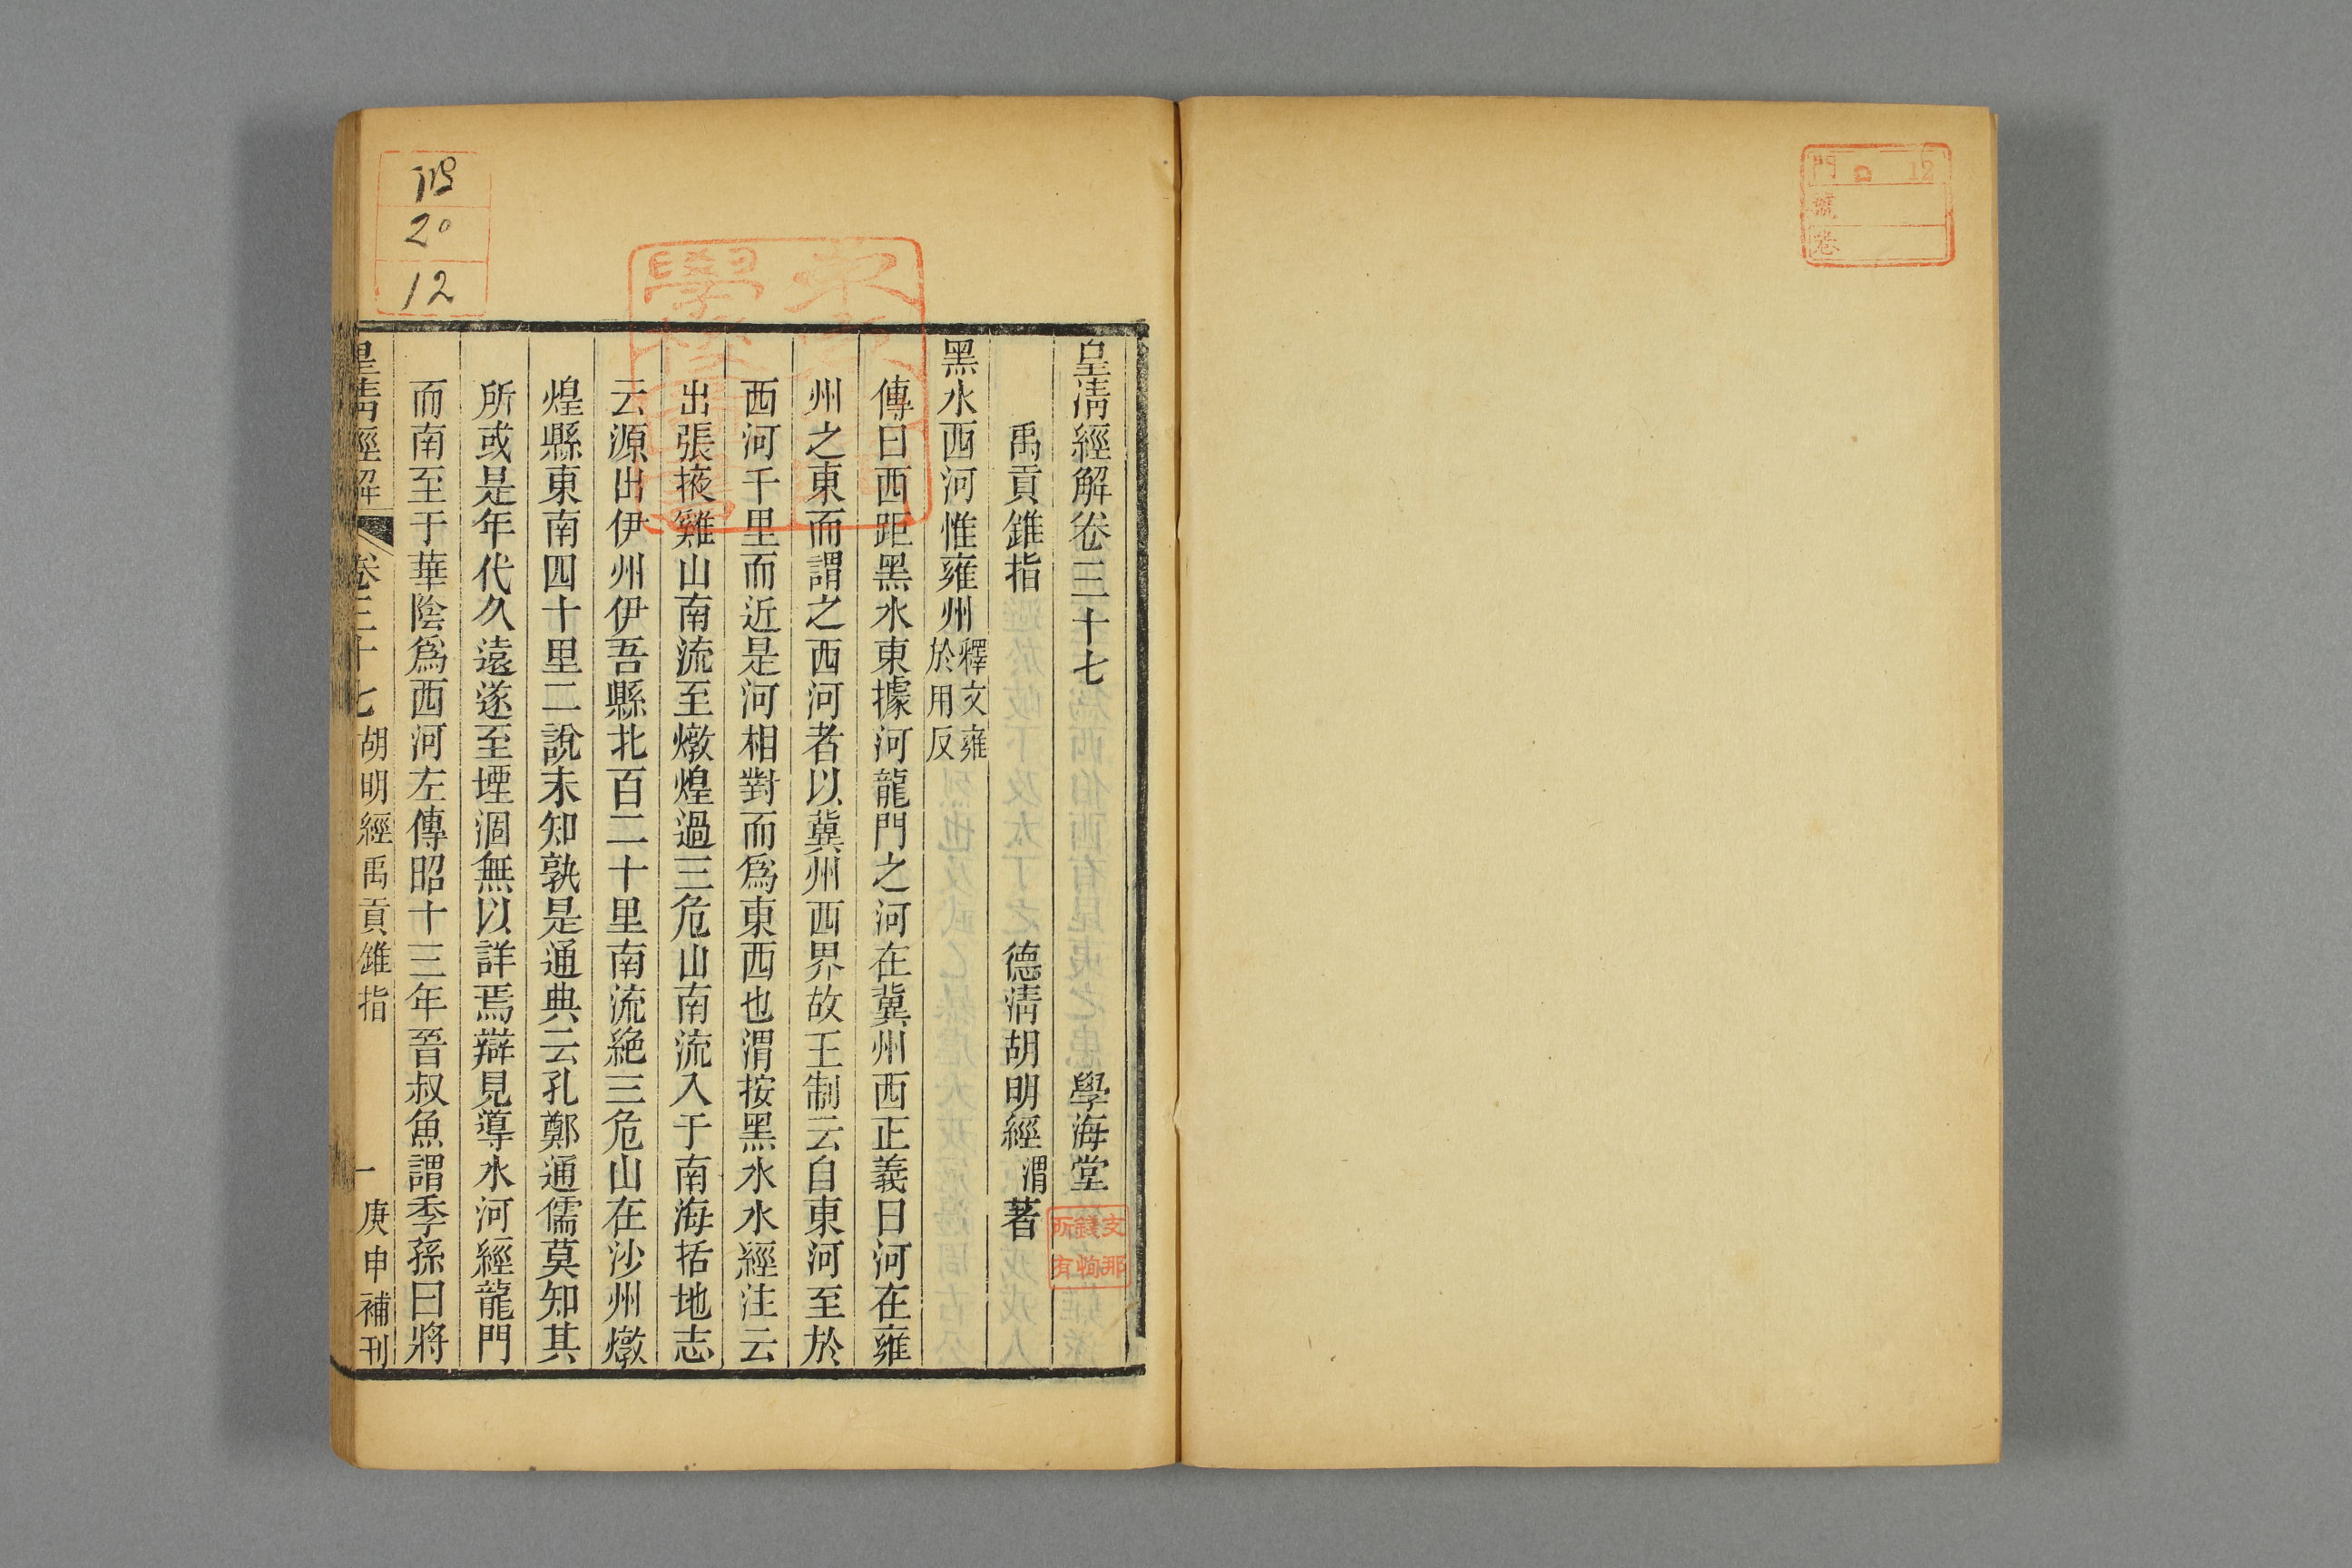 門 12
號
卷
皇清經解卷三十七 學海堂
禹貢錐指 德清胡明經渭著
黑水西河惟雍州釋文雍於用反
傳曰西距黑水東據河龍門之河在冀州西正義曰河在雍
州之東而謂之西河者以冀州西界故王制云自東河至於
西河千里而近是河相對而為東西也渭按黑水水經注云
出張掖雞山南流至燉煌過三危山南流入于南海括地志
云源出伊州伊吾縣北百二十里南流絶三危山在沙州燉
煌縣東南四十里二說未知孰是通典云孔鄭通儒莫知其
所或是年代久遠遂至堙涸無以詳焉辯見導水河經龍門
而南至于華陰爲西河左傳昭十三年晉叔魚謂季孫曰將
皇清經解 卷三十七 胡明經禹貢錐指 一 庚申補刊
支那
錢恂
所有
20
12